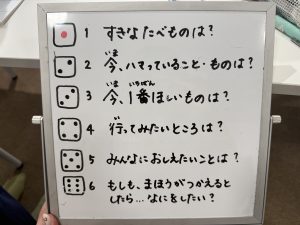 1 すきなたべものは?
2 今、ハマっていること・ものは?
3 今、1番ほしいものは?
4 行ってみたいところは?
5 みんなにおしえたいことは?
6 もしも、まほうがつかえると
したら…なにをしたい?